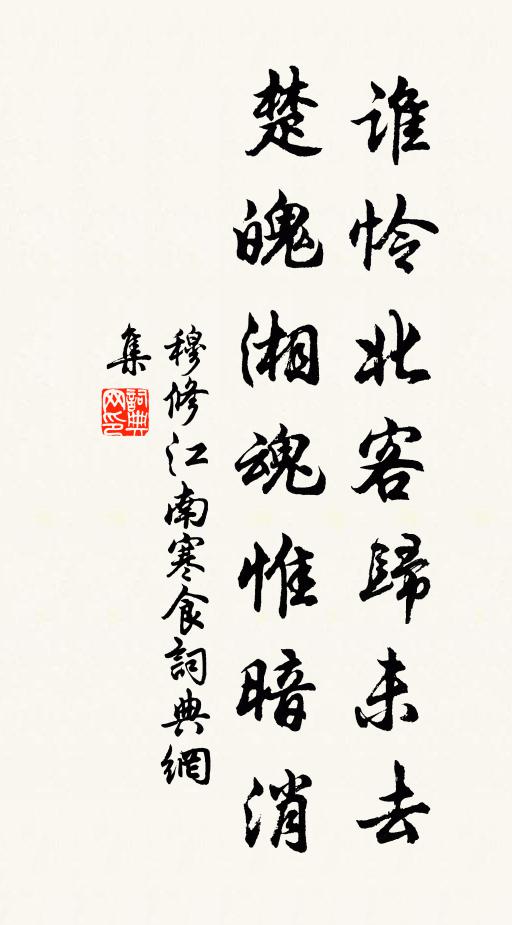 谁怜北客歸未去
楚魄湘魂惟暗消
穆修江南寒食詞典網
集
詞典网印